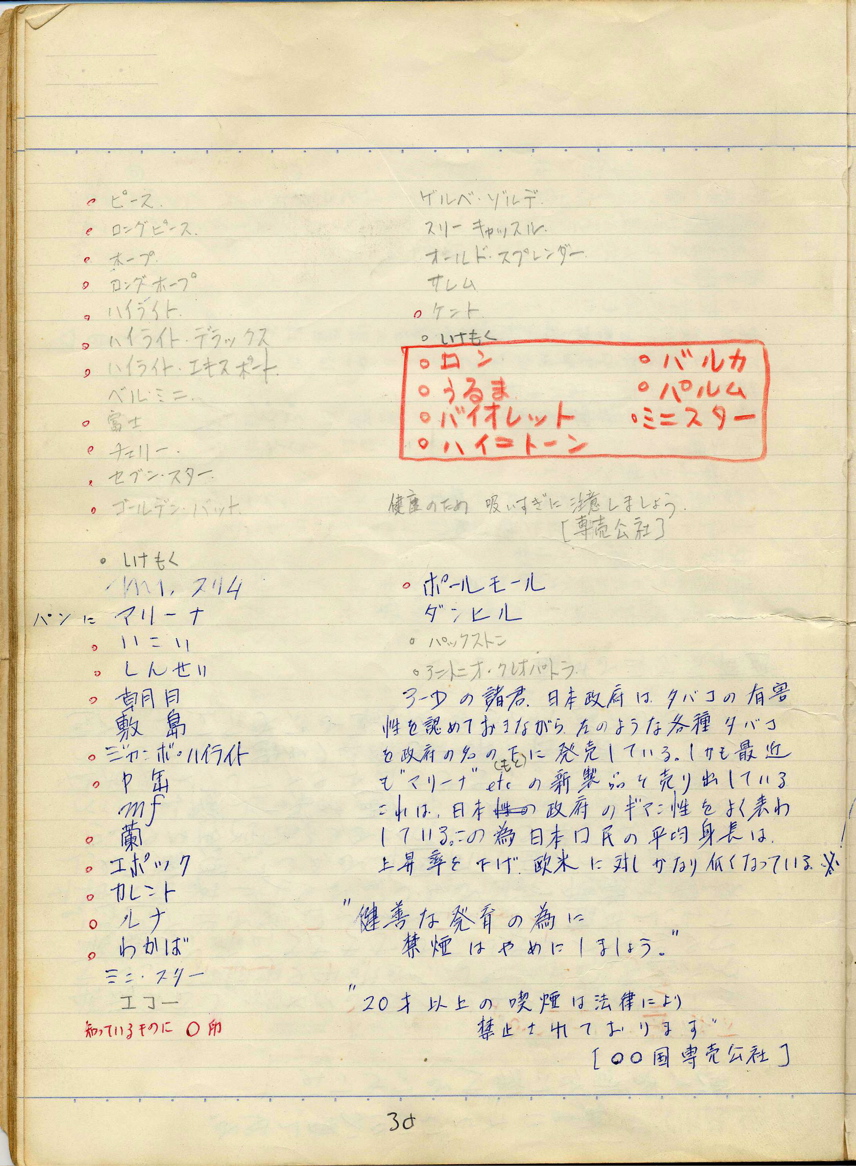 ピース.
ロングピース.
ホープ
ロングホープ
ハイライト.
ハイライト・デラックス
ハイライト・エキスポート.
ベル・ミニ.
富士
チェリー.
セブン・スター.
ゴールデン・バット.
しけもく
スリム
パンに マリーナ
いこい
しんせい
朝日
敷島
ジャンボ・ハイライト
中缶
mf
蘭
エポック
カレント
ルナ
わかば
ミニ・スター
エコー
知っているものに ○印
ゲルベ・ゾルデ.
スリーキャッスル.
オールド・スプレンダー.
サレム
ケント.
しけもく
ロン
うるま
バイオレット
ハイコトーン
バルカ
パルム
ミニスター
健康のため 吸いすぎに注意しましょう.
[専売公社]
ポールモール
ダンヒル
パックストン
アントニオ・クレオパトラ.
3-Dの諸君、日本政府は、タバコの有害
性を認めておきながら、左のような各種タバコ
を政府の名の下(もと)に発売している。しかも最近
も"マリーナ" etc の新製品を売り出している
これは、日本政府のギマン性をよく表わ
している。この為日本口民の平均身長は、
上昇率を下げ、欧米に対しかなり低くなっている。※
"健善な発育の為に
禁煙はやめにしましょう。"
"20才以上の喫煙は法律により
禁止されております"
[○○国専売公社]
38